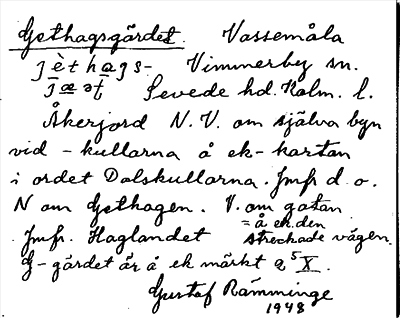 Gethagsgärdet. Vassemåla
jèthags- Vimmerby sn.
jæət Sevede hd. Kalm. l.
Åkerjord N.V. om själva byn
vid -kullarna å ek-kartan
i ordet Dalskullarna. Jmf d. o.
N om Gethagen. V. om gatan
= å ek. den
Jmfr. Haglandet streckade vägen.
G-gärdet är å ek märkt a⁵X.
Gustaf Ramminge
1948